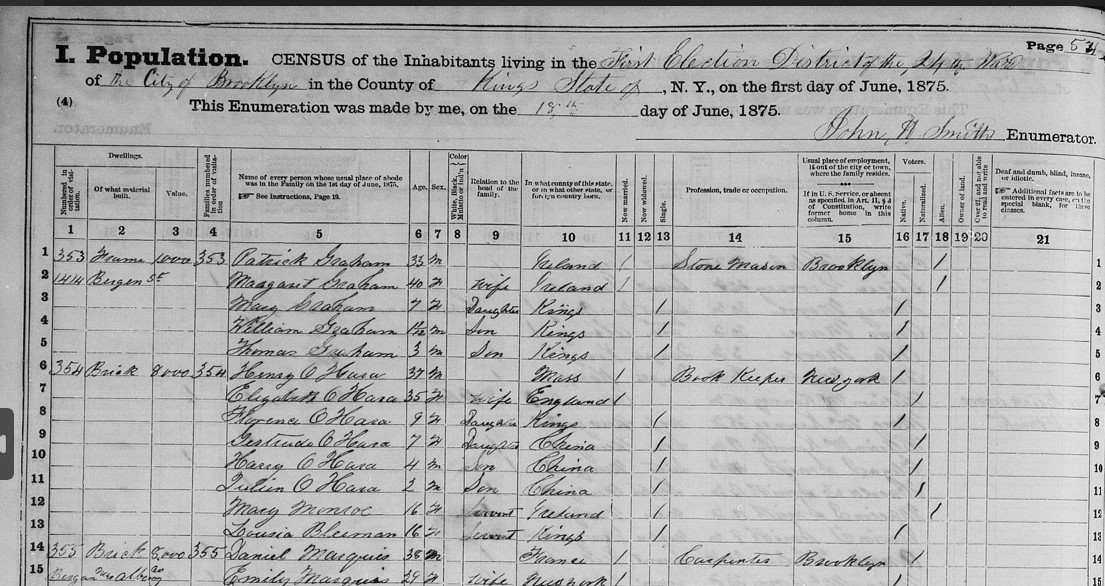 Page 54
I. Population. CENSUS of the Inhabitants living in the First Election District of the 24th Ward
of the City of Brooklyn in the County of Kings State of , N. Y., on the first day of June, 1875.
(4) This Enumeration was made by me, on the 15th day of June, 1875.
John H Smith Enumerator.
Numbered in order of visitation Dwellings. Of what material built. Value. Families numbered in order of visitation Name of every person whose usual place of abode was in the Family on the 1st day of June, 1875. See Instructions, Page 19. Age. Sex. Color White, Black, Mulatto or Ind'n Relation to the head of the family. In what county of this state, or in what other state, or foreign country born. Now married. Now widowed. Single. Profession, trade or occupation. Usual place of employment, if out of the city or town, where the family resides. If in U. S. Service, or absent as specified in Art. II, § 4 of Constitution, write former home in this column. Voters. Native. Naturalized. Alien. Owner of land. Over 21, and not able to read and write Deaf and dumb, blind, insane, or idiotic. Additional facts are to be entered in every case, on the special blank, for these classes.
1 2 3 4 5 6 7 8 9 10 11 12 13 14 15 16 17 18 19 20 21
1 353 Frame 1000 353 Patrick Graham 33 m Ireland / Stone Mason Brooklyn / 1
2 1414 Bergen St Margaret Graham 40 F Wife Ireland / / 2
3 Mary Graham 7 F Daughter Kings / / 3
4 William Graham m Son Kings / / 4
5 Thomas Graham 3 m Son Kings / / 5
6 354 Brick 8000 354 Henry O Hara 37 m Mass / Book Keeper New York / 6
7 Elizabeth O Hara 35 F Wife England / / 7
8 Florence O Hara 9 F Daughter Kings / / 8
9 Gertrude O Hara 7 F Daughter China / / 9
10 Harry O Hara 4 m Son China / / 10
11 Julien O Hara 2 m Son China / / 11
12 Mary Monroe 16 F Servant Ireland / / 12
13 Lousia Bleeman 16 F Servant Kings / / 13
14 355 Brick 8000 355 Daniel Marquis 38 m France / Carpenter Brooklyn / 14
15 Bergen Albany av Emily Marquis 29 F Wife New York / / 15